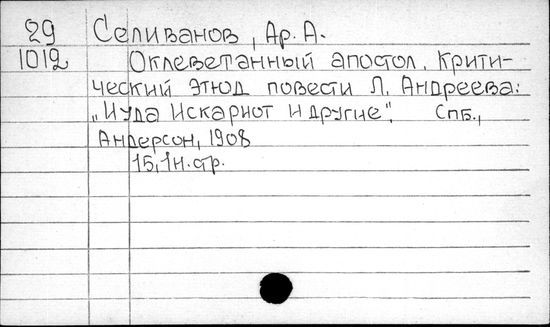 29 Селиванов, Ар. А.
1012 Оклеветанный апостол. Крити-
ческий этюд повести Л. Андреева:
„Иуда Искариот и другие”. Спб.,
Андерсон, 1908
15, 1н. стр.